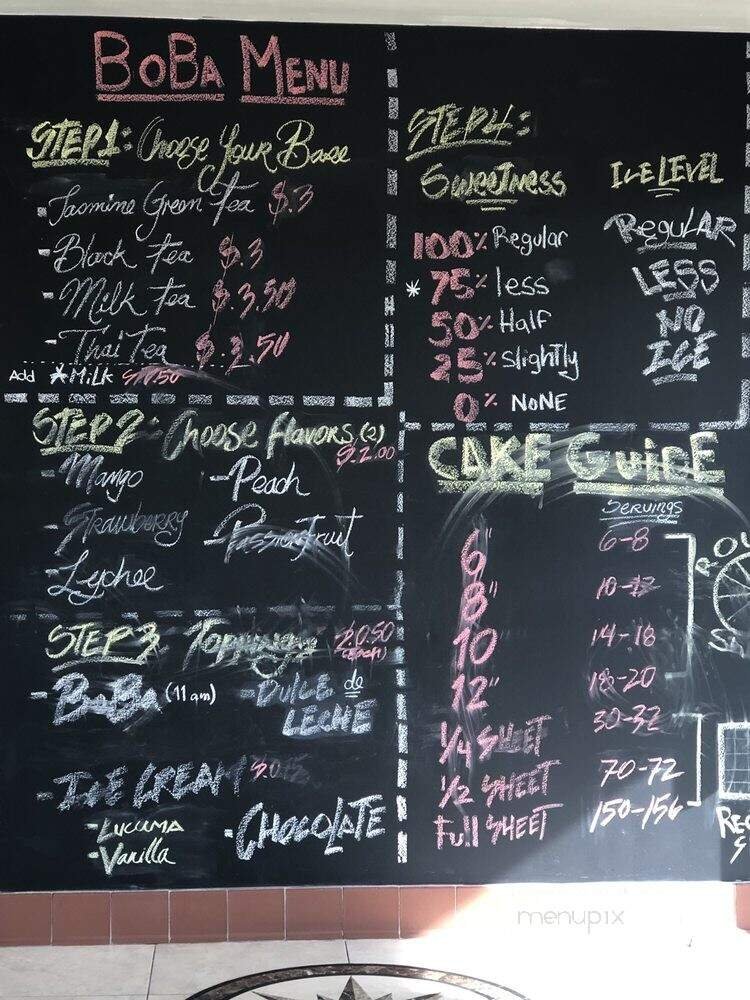 BOBA MENU
STEP1: Choose Your Base
- Jasmine Green Tea $.3
- Black Tea $.3
- Milk Tea $.3.50
- Thai Tea $.3.50
Add *MILK $0.50
STEP2: Choose flavors (2)
$2.00
- Mango
- Peach
- Strawberry
- PassionFruit
- Lychee
STEP3 Toppings $0.50
(Each)
- BOBA (11am)
- DULCE de
LECHE
- ICE CREAM
- LUCUMA
- Vanilla
- CHOCOLATE
STEP4:
SWEETNESS
100% Regular
* 75% less
50% Half
25% slightly
0% NONE
ICE LEVEL
RegulAR
LESS
NO
ICE
CAKE GUIDE
SERVINGS
6" 6-8
8" 10-12
10 14-18
12" 18-20
1/4 SHEET 30-32
1/2 SHEET 70-72
Full SHEET 150-156
menupix